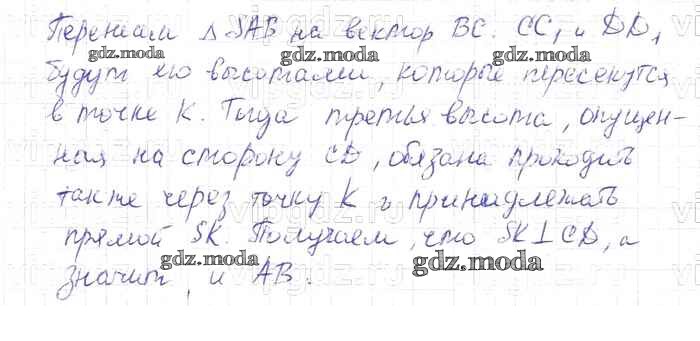 Перенесём △ SAB на вектор BC. CC₁ и DD₁
будут его высотами, которые пересекутся
в точке K. Тогда третья высота, опущен-
ная на сторону CD, обязана проходить
также через точку K и принадлежать
прямой SK. Получаем, что SK⊥CD, а
значит, и AB.
gdz.moda
gdz.moda
gdz.moda
gdz.moda
gdz.moda
gdz.moda
gdz.moda